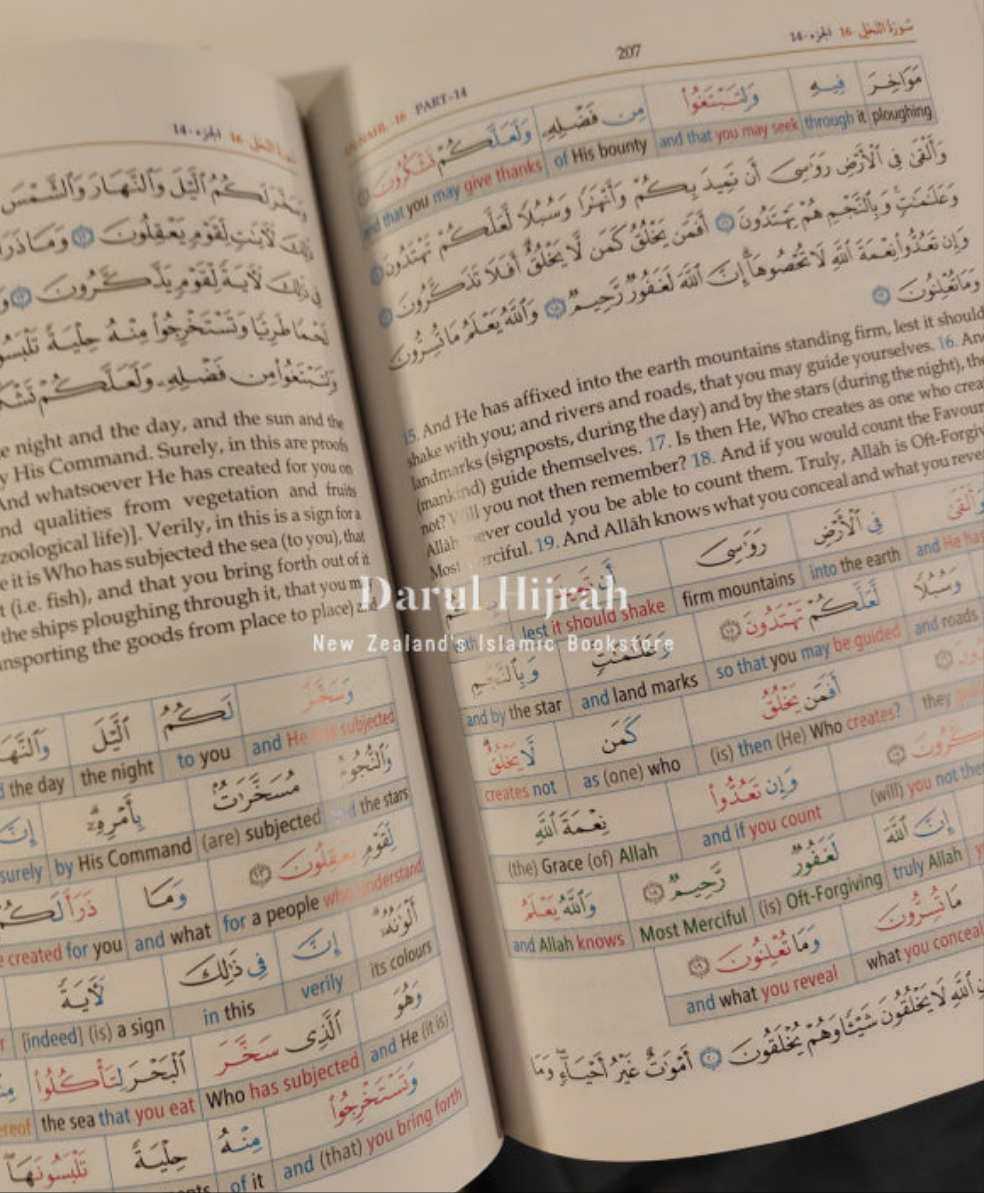 سورة النحل ١٦ الجزء ١٤
وَسَخَّرَ لَكُمُ ٱلَّيْلَ وَٱلنَّهَارَ وَٱلشَّمْسَ
ذَٰلِكَ لَـَٔايَـٰتٍ لِّقَوْمٍ يَعْقِلُونَ ١٢ وَمَا ذَرَأَ
فِى ذَٰلِكَ لَـَٔايَةً لِّقَوْمٍ يَذَّكَّرُونَ ١٣
لَحْمًا طَرِيًّا وَتَسْتَخْرِجُوا۟ مِنْهُ حِلْيَةً
وَلِتَبْتَغُوا۟ مِن فَضْلِهِۦ وَلَعَلَّكُمْ
night and the day, and the sun and the
His Command. Surely, in this are proofs
And whatsoever He has created for you on
qualities from vegetation and fruits
zoological life)]. Verily, in this is a sign for a
it is Who has subjected the sea (to you), that
(i.e. fish), and that you bring forth out of it
the ships ploughing through it, that you
transporting the goods from place to place) and
وَسَخَّرَ لَكُمُ ٱلَّيْلَ
and He has subjected to you the night the day
وَٱلنُّجُومُ مُسَخَّرَٰتٌۢ بِأَمْرِهِۦٓ إِنَّ
and the stars (are) subjected by His Command surely
لِّقَوْمٍ يَعْقِلُونَ ١٢ وَمَا ذَرَأَ لَكُمْ
for a people who understand and what created for you
أَلْوَٰنُهُۥٓ إِنَّ فِى ذَٰلِكَ لَـَٔايَةً
its colours verily in this [indeed] (is) a sign
وَهُوَ ٱلَّذِى سَخَّرَ ٱلْبَحْرَ لِتَأْكُلُوا۟
and He (it is) Who has subjected the sea that you eat
وَتَسْتَخْرِجُوا۟ مِنْهُ حِلْيَةً تَلْبَسُونَهَا
and (that) you bring forth of it
AN-NAHL -16 PART-14 207 سورة النحل ١٦ الجزء ١٤
مَوَاخِرَ فِيهِ وَلِتَبْتَغُوا۟ مِن فَضْلِهِۦ وَلَعَلَّكُمْ تَشْكُرُونَ
ploughing through it and that you may seek of His bounty and that you may give thanks
وَأَلْقَىٰ فِى ٱلْأَرْضِ رَوَٰسِىَ أَن تَمِيدَ بِكُمْ وَأَنْهَـٰرًا وَسُبُلًا لَّعَلَّكُمْ تَهْتَدُونَ ١٥
وَعَلَـٰمَـٰتٍ وَبِٱلنَّجْمِ هُمْ يَهْتَدُونَ ١٦ أَفَمَن يَخْلُقُ كَمَن لَّا يَخْلُقُ أَفَلَا تَذَكَّرُونَ ١٧
وَإِن تَعُدُّوا۟ نِعْمَةَ ٱللَّهِ لَا تُحْصُوهَآ إِنَّ ٱللَّهَ لَغَفُورٌ رَّحِيمٌ ١٨ وَٱللَّهُ يَعْلَمُ مَا تُسِرُّونَ
وَمَا تُعْلِنُونَ ١٩
15. And He has affixed into the earth mountains standing firm, lest it should
shake with you; and rivers and roads, that you may guide yourselves. 16. And
landmarks (signposts, during the day) and by the stars (during the night), the
(mankind) guide themselves. 17. Is then He, Who creates as one who
not? Will you not then remember? 18. And if you would count the
Allâh never could you be able to count them. Truly, Allâh is
Most Merciful. 19. And Allâh knows what you conceal and what you
وَأَلْقَىٰ فِى ٱلْأَرْضِ رَوَٰسِىَ أَن تَمِيدَ
and He has into the earth firm mountains lest it should shake
Darul Hijrah
New Zealand's Islamic Bookstore
وَسُبُلًا لَّعَلَّكُمْ تَهْتَدُونَ ١٥ وَعَلَـٰمَـٰتٍ وَبِٱلنَّجْمِ
and roads so that you may be guided and land marks and by the star
أَفَمَن يَخْلُقُ كَمَن لَّا يَخْلُقُ
they (is) then (He) Who creates? as (one) who creates not
وَإِن تَعُدُّوا۟ نِعْمَةَ ٱللَّهِ
(will) you not and if you count (the) Grace (of) Allah
إِنَّ ٱللَّهَ لَغَفُورٌ رَّحِيمٌ ١٨ وَٱللَّهُ يَعْلَمُ
truly Allah (is) Oft-Forgiving Most Merciful and Allah knows
مَا تُسِرُّونَ وَمَا تُعْلِنُونَ ١٩
what you conceal and what you reveal
ٱللَّهِ لَا يَخْلُقُونَ شَيْـًٔا وَهُمْ يُخْلَقُونَ ٢٠ أَمْوَٰتٌ غَيْرُ أَحْيَآءٍ وَمَا